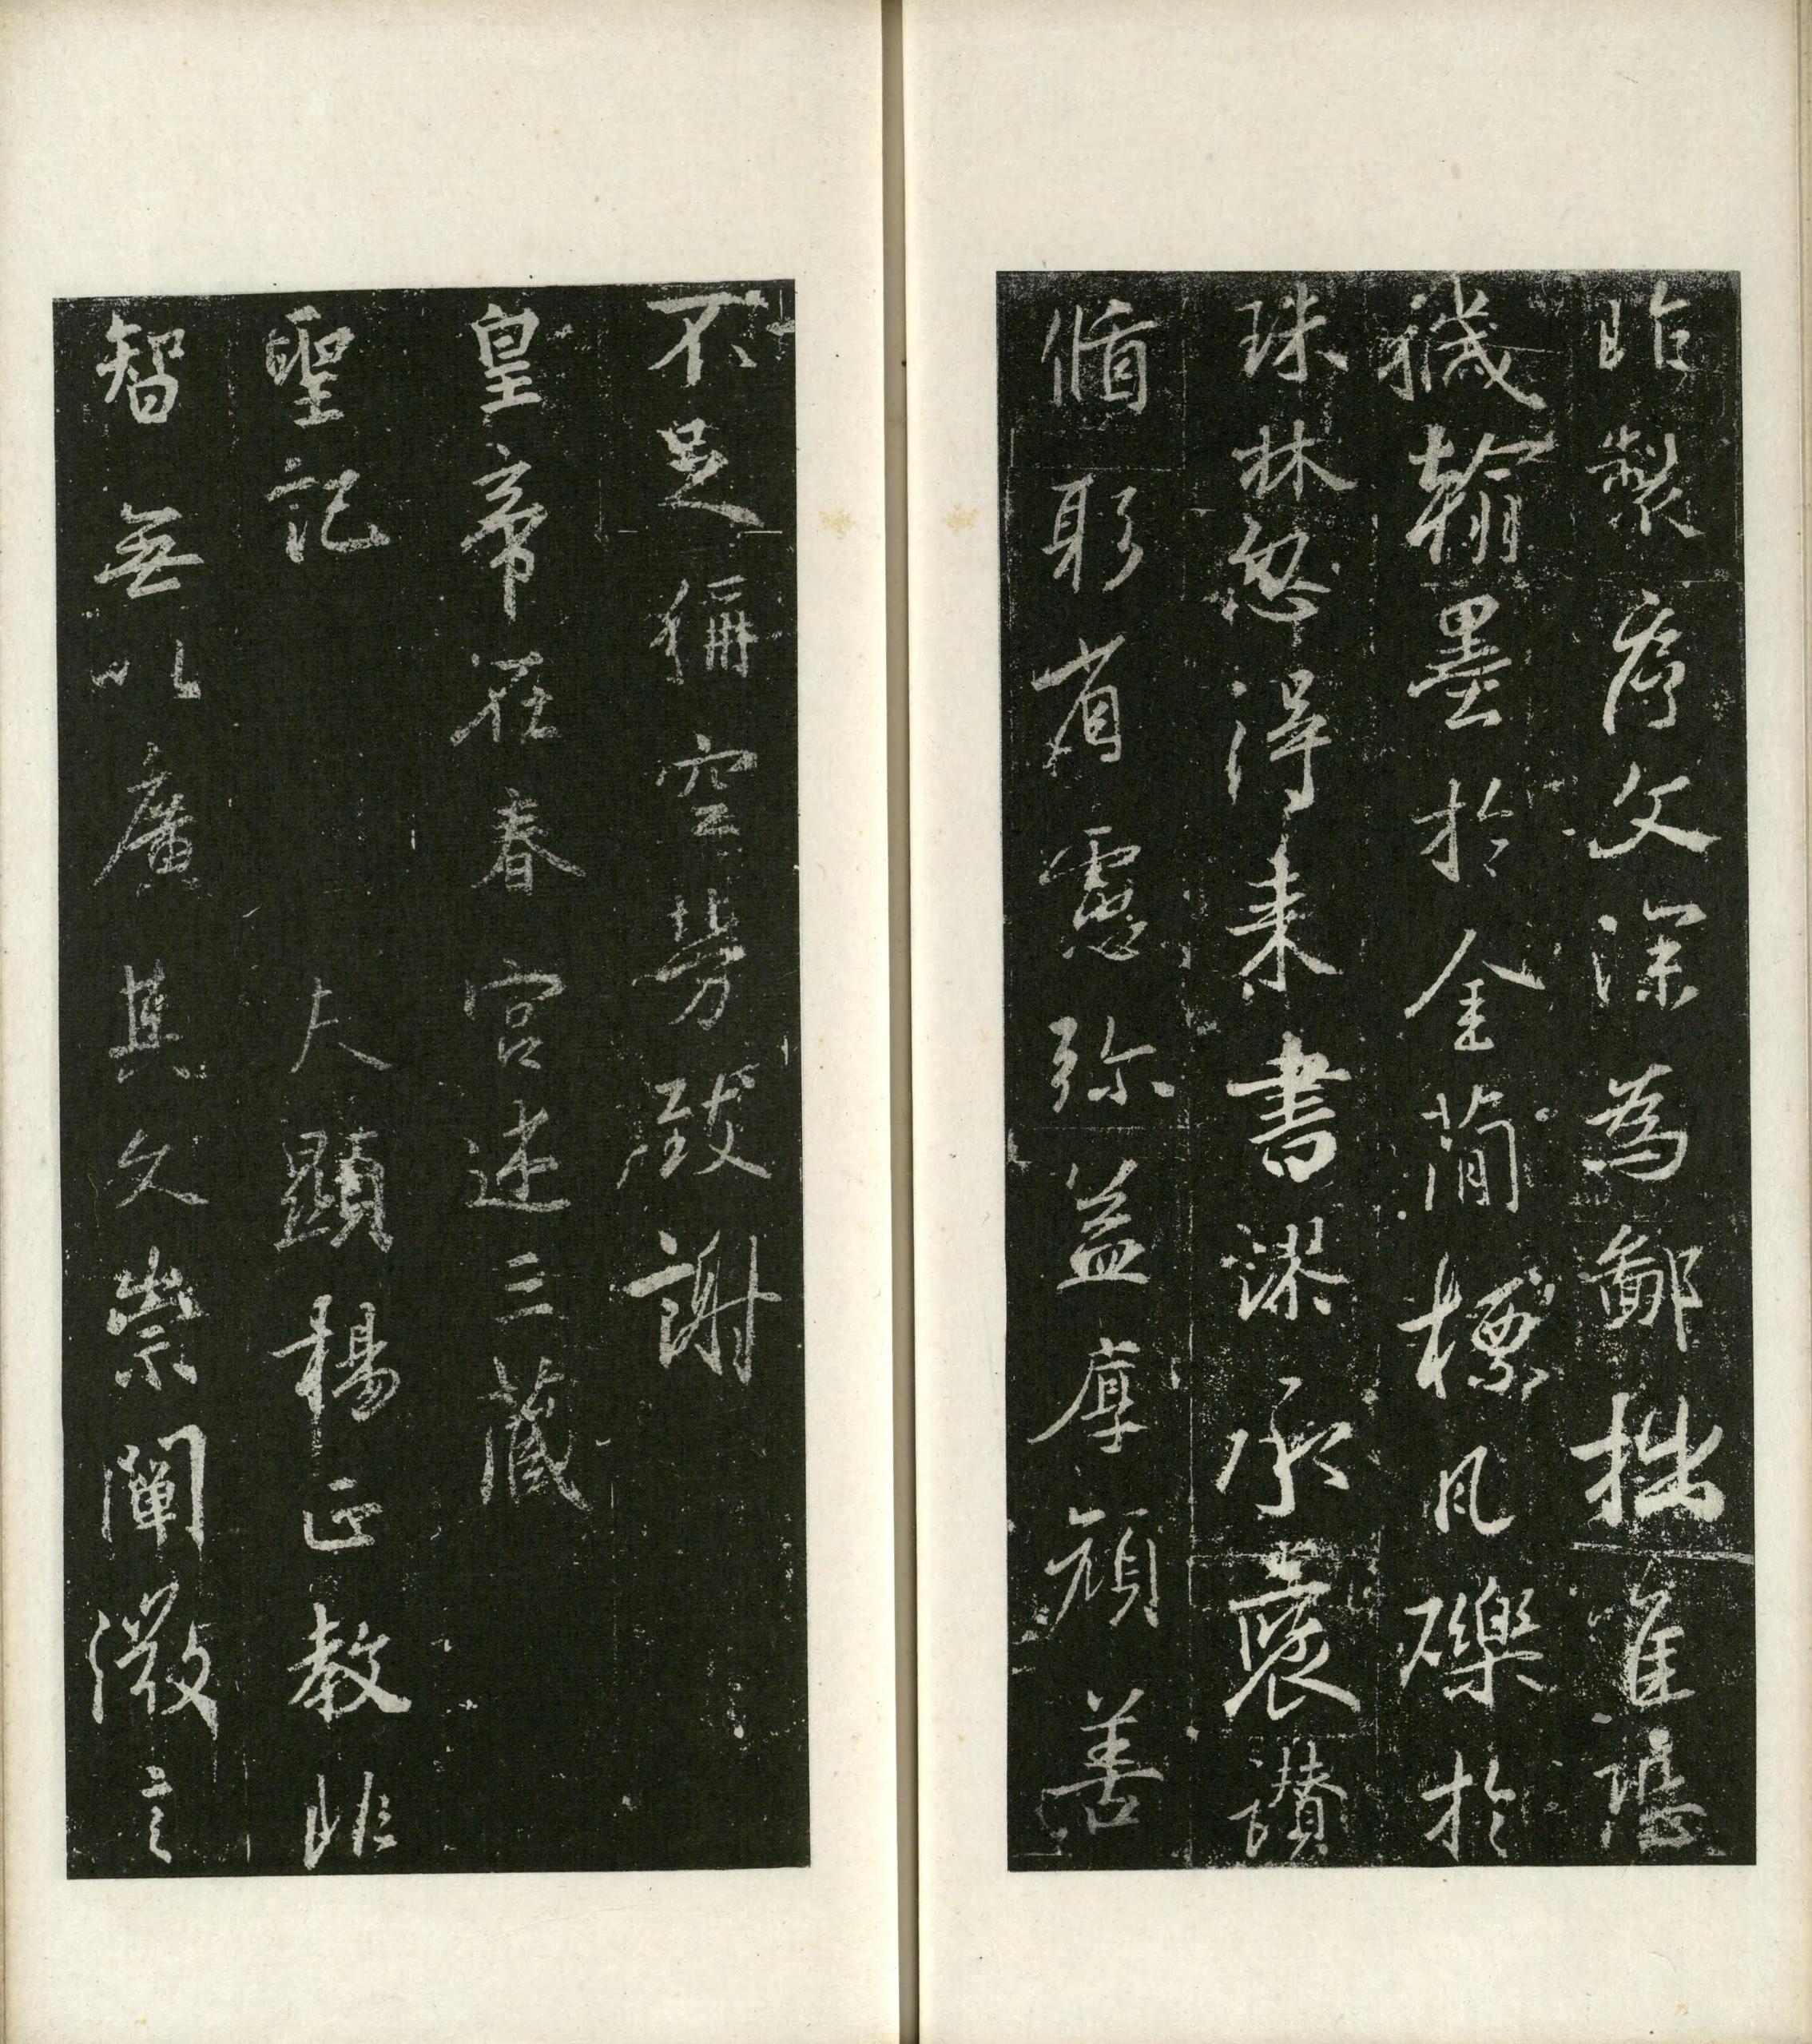 昨製序文深為鄙拙唯恐
穢翰墨於金簡標瓦礫於
珠林忽得來書謬承褒讚
循躬省慮弥益厚顏善
不足稱空勞致謝
皇帝在春宮述三藏
聖記
夫顯揚正教非
智無以廣其文崇闡微言